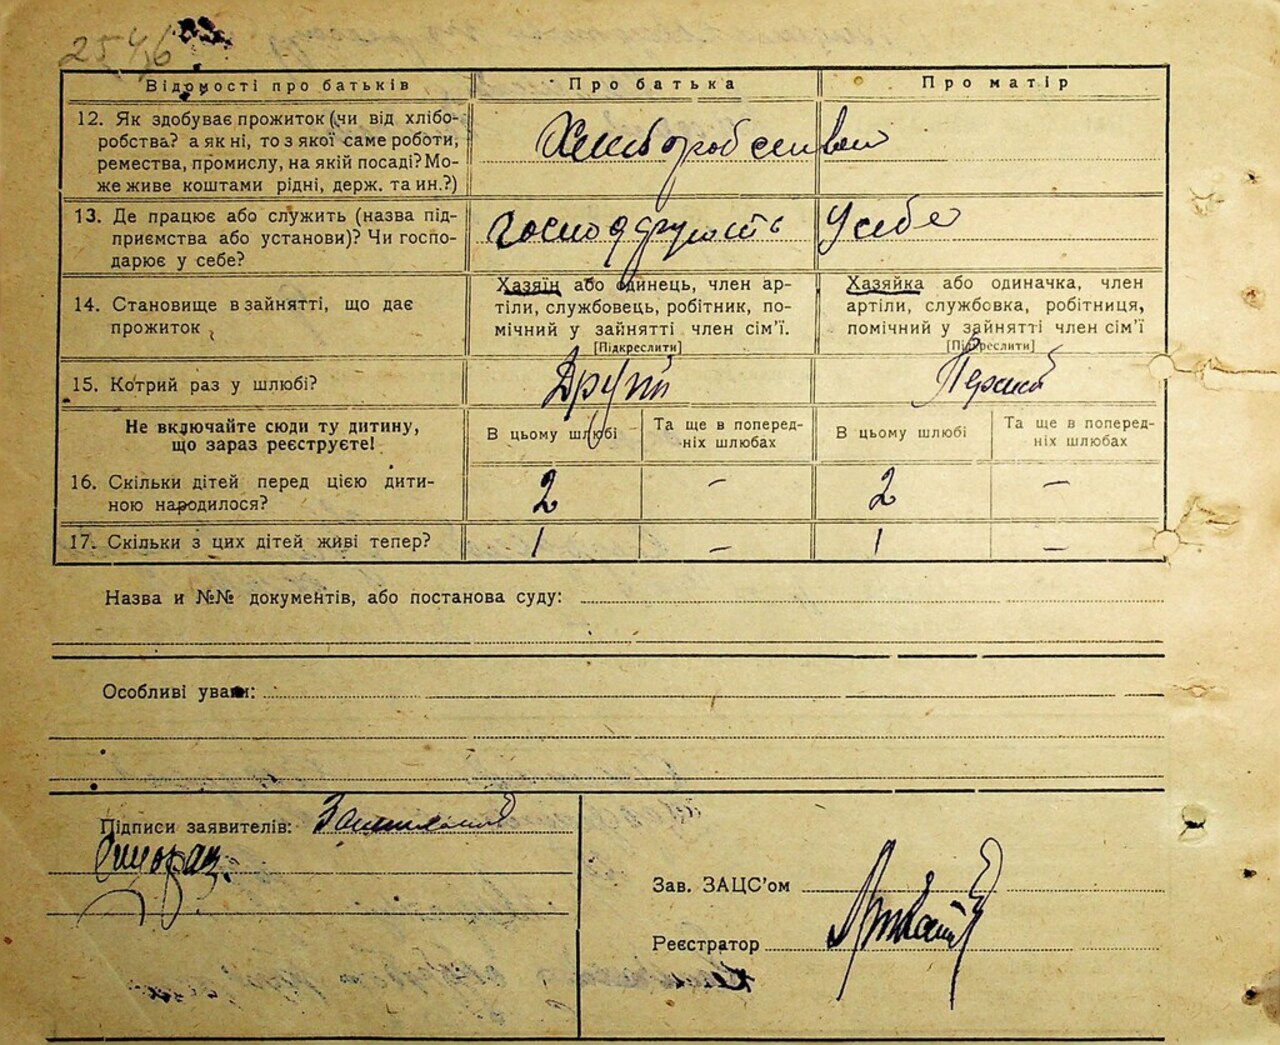 2546
Відомості про батьків Про батька Про матір
12. Як здобуває прожиток (чи від хлібо-
робства? а як ні, то з якої саме роботи,
ремества, промислу, на якій посаді? Мо-
же живе коштами рідні, держ. та ин.?)
Хліборобством
13. Де працює або служить (назва під-
приємства або установи)? Чи госпо-
дарює у себе?
у себе
14. Становище в зайнятті, що дає
прожиток
Хазяїн або одинець, член ар-
тіли, службовець, робітник, по-
мічний у зайнятті член сім'ї.
[Підкреслити]
Хазяйка або одиначка, член
артіли, службовка, робітниця,
помічний у зайнятті член сім'ї
[Підкреслити]
15. Котрий раз у шлюбі? Другий Перший
Не включайте сюди ту дитину,
що зараз реєструєте!
В цьому шлюбі
Та ще в поперед-
ніх шлюбах
В цьому шлюбі
Та ще в поперед-
ніх шлюбах
16. Скільки дітей перед цією дити-
ною народилося?
2 – 2 –
17. Скільки з цих дітей живі тепер? 1 – 1 –
Назва и №№ документів, або постанова суду:
Особливі уваги:
Підписи заявителів:
Зав. ЗАЦС'ом
Реєстратор